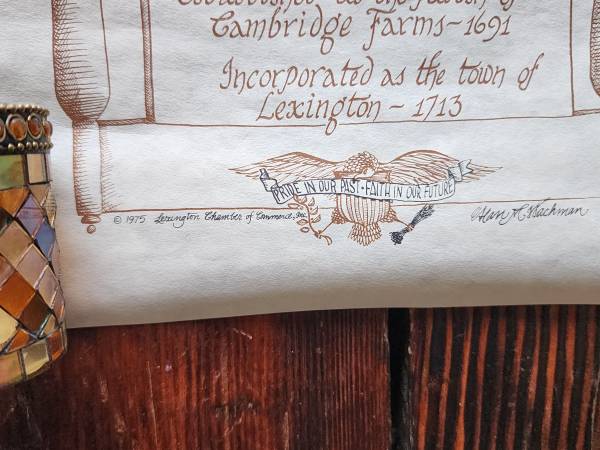 Established as the parish of
Cambridge Farms~1691
Incorporated as the town of
Lexington ~ 1713
PRIDE IN OUR PAST • FAITH IN OUR FUTURE
© 1975 Lexington Chamber of Commerce, Inc.
Bachman